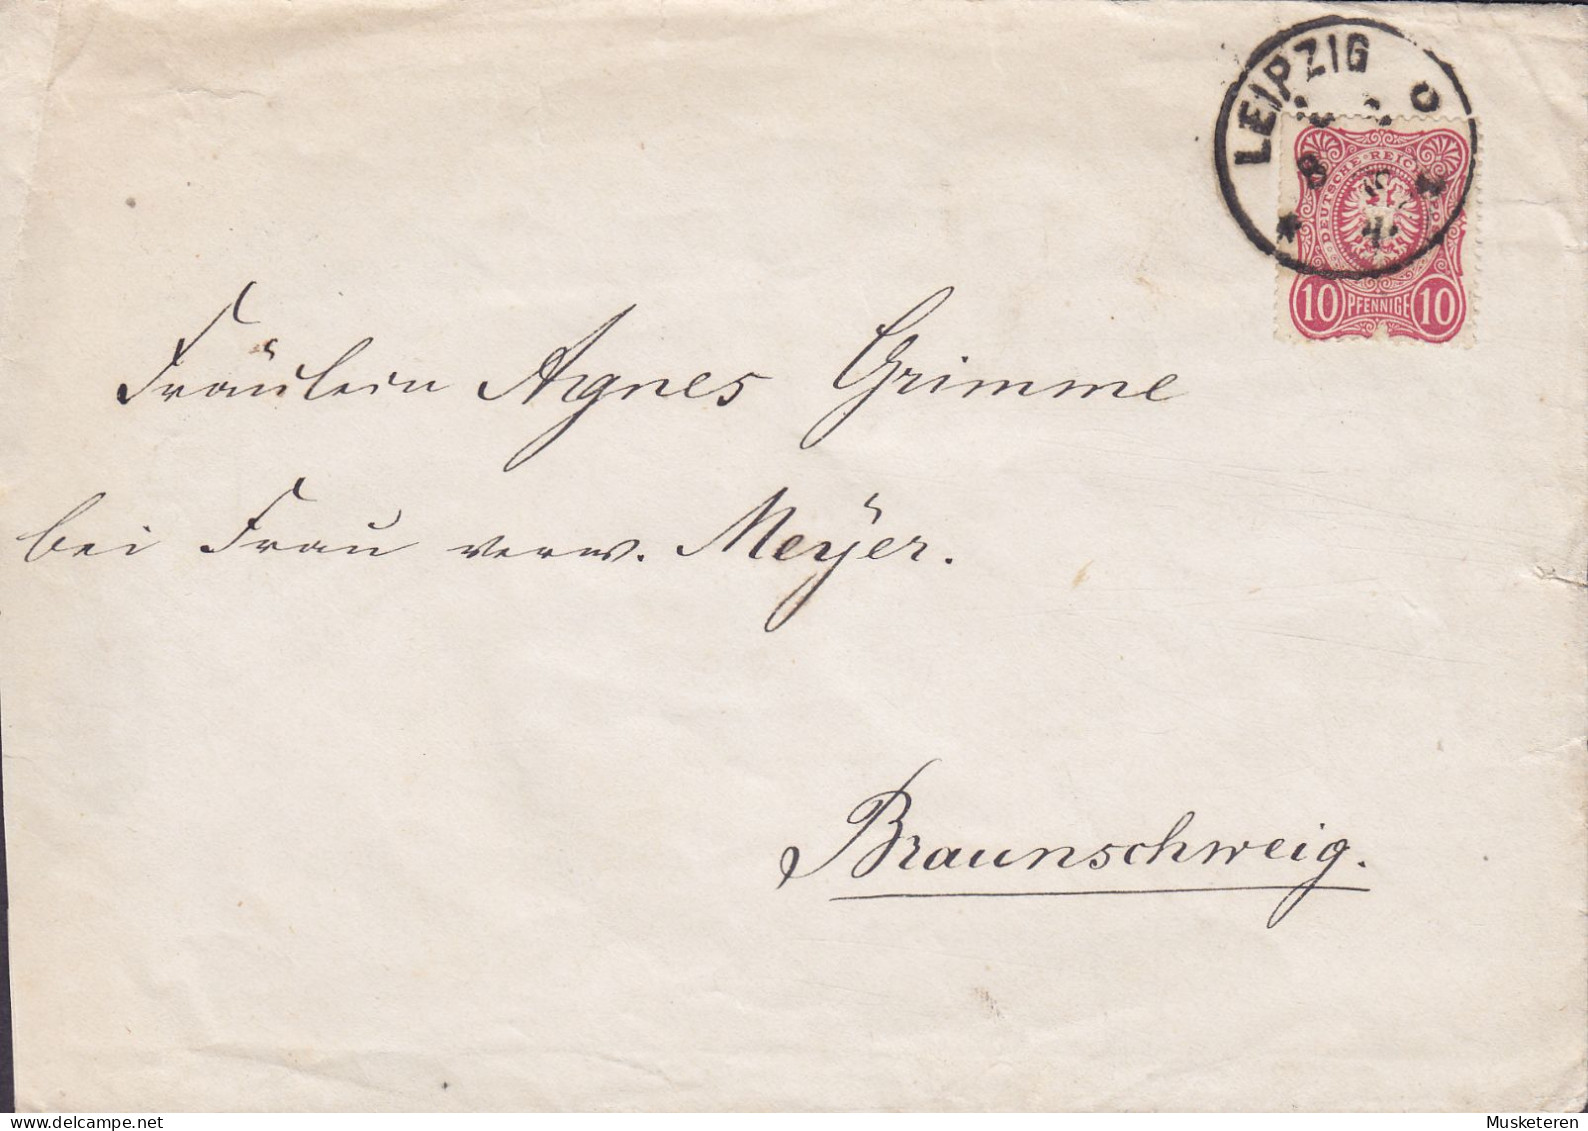 LEIPZIG
DEUTSCHE REICH
10 PFENNIGE 10
Fräulein Agnes Grimme
bei Frau verw. Meÿer.
Braunschweig.
Musketeren